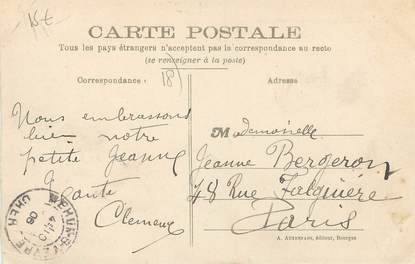 15€
CARTE POSTALE
Tous les pays étrangers n'acceptent pas la correspondance au recto
(se renseigner à la poste)
Correspondance
18
Adresse
Nous embrassons
bien notre
petite Jeanne
Mademoiselle
Jeanne Bergeron
48 Rue Falguière
Paris
A. AUXENFANS, éditeur, Bourges
MEHUN-S-YEVRE
CHER
08